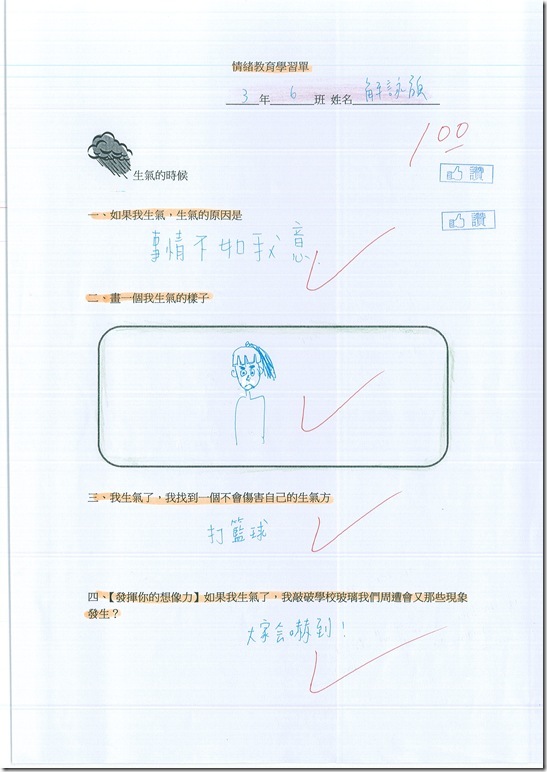 情緒教育學習單
3 年 6 班 姓名 解詠
100
生氣的時候
讚
一、如果我生氣，生氣的原因是
讚
事情不如我意.
二、畫一個我生氣的樣子
三、我生氣了，我找到一個不會傷害自己的生氣方
打籃球
四、【發揮你的想像力】如果我生氣了，我敲破學校玻璃我們周遭會又那些現象
發生？
大家会嚇到！